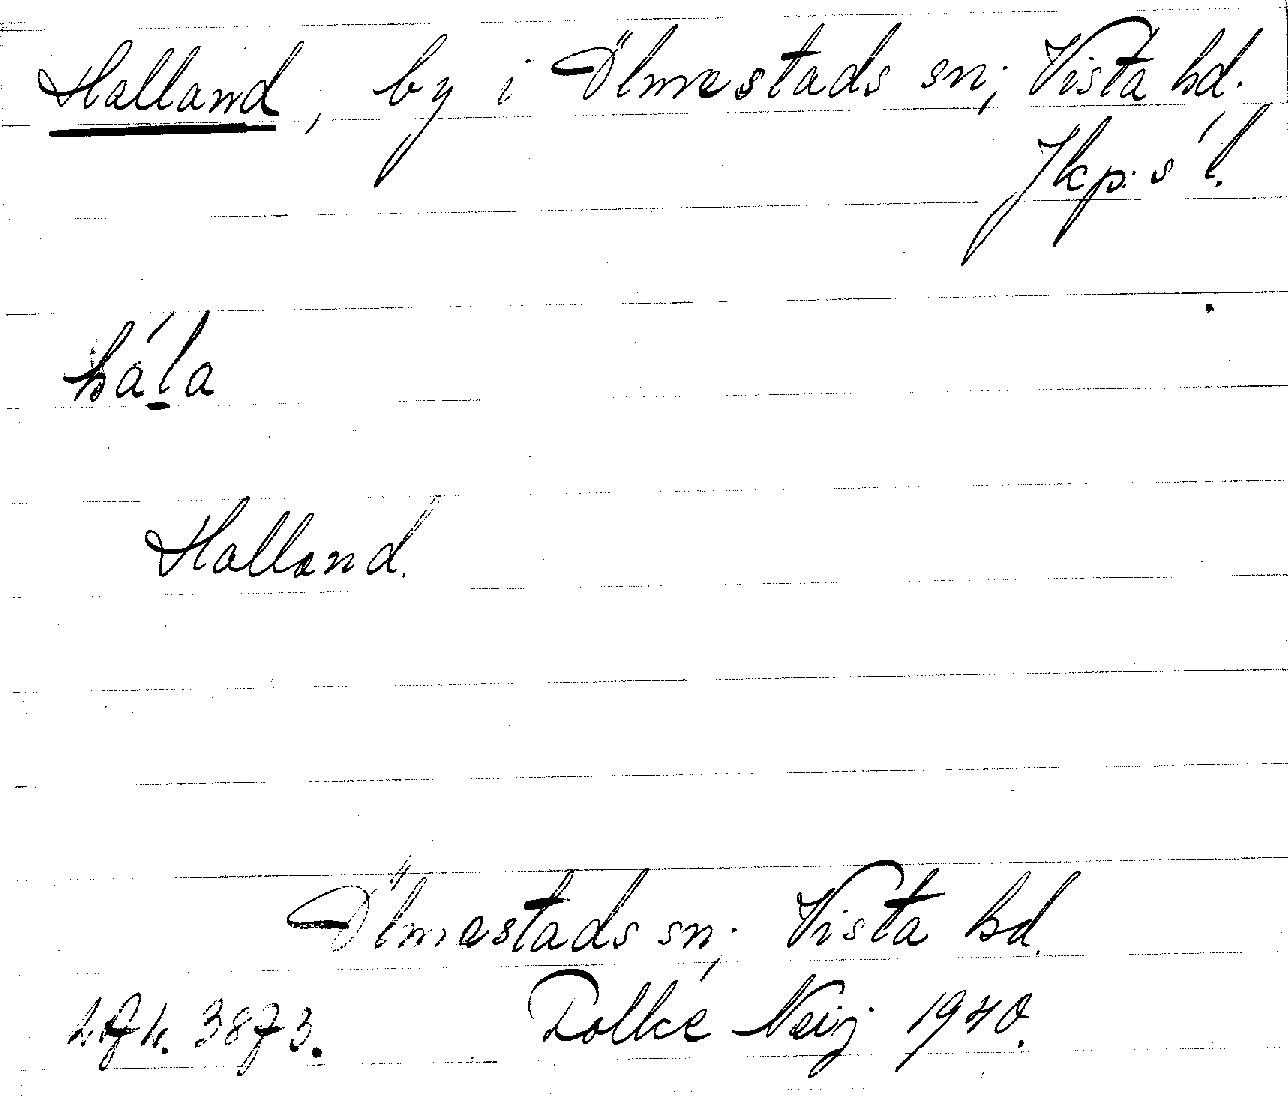 Halland, by i Ölmestads sn; Vista hd.
Jkp:s l.
há̱la
Halland.
Ölmestads sn; Vista hd.
3873. Neij 1940.